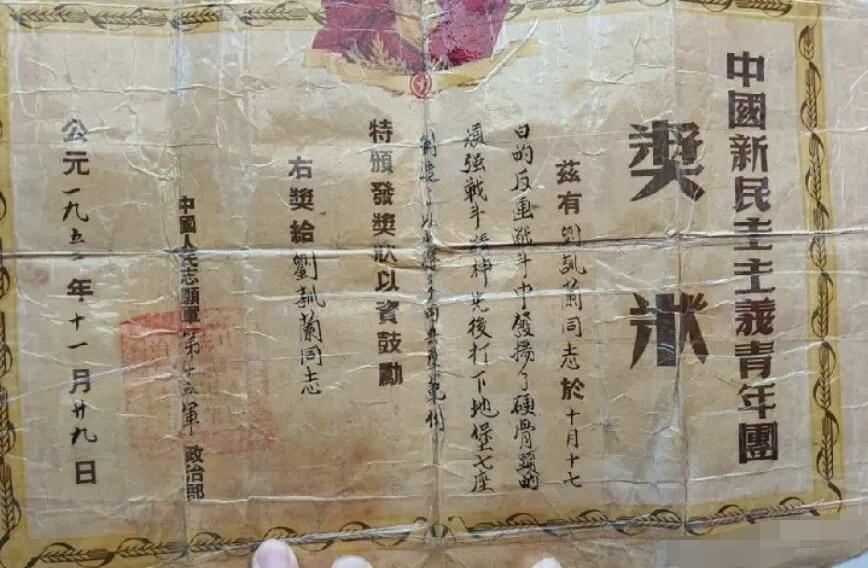 中國新民主主義青年團
獎狀
茲有劉訊蘭同志於十月十七
日的反戰斗中發揚了硬骨頭的
頑強戰斗精神先後打下地堡七座
創造了以範例
特頒發獎狀以資鼓勵
右獎給劉訊蘭同志
中國人民志願軍第十五軍政治部
公元一九五二年十一月廿九日